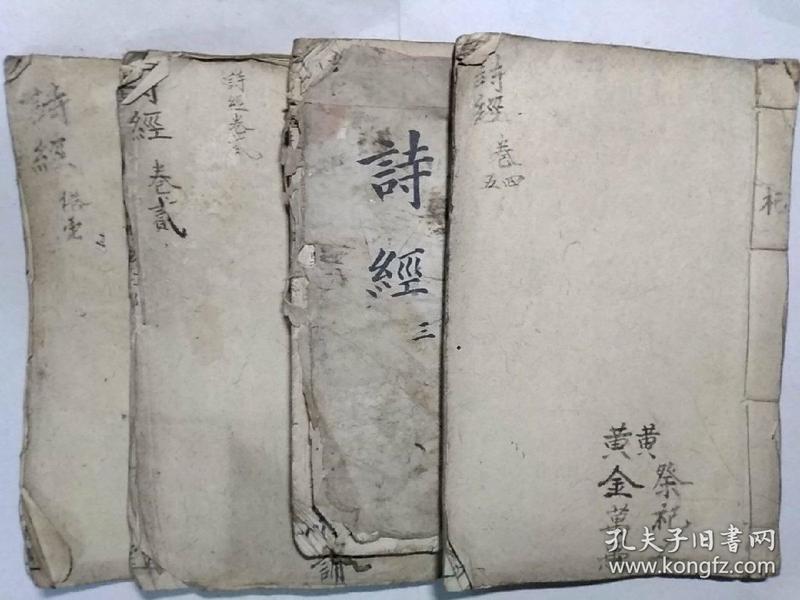 詩經
詩經
卷貳
詩經卷貳
詩經
三
詩經
卷四
五
祀
黄祭祀
黄金萬
誦
孔夫子旧书网
www.kongfz.com